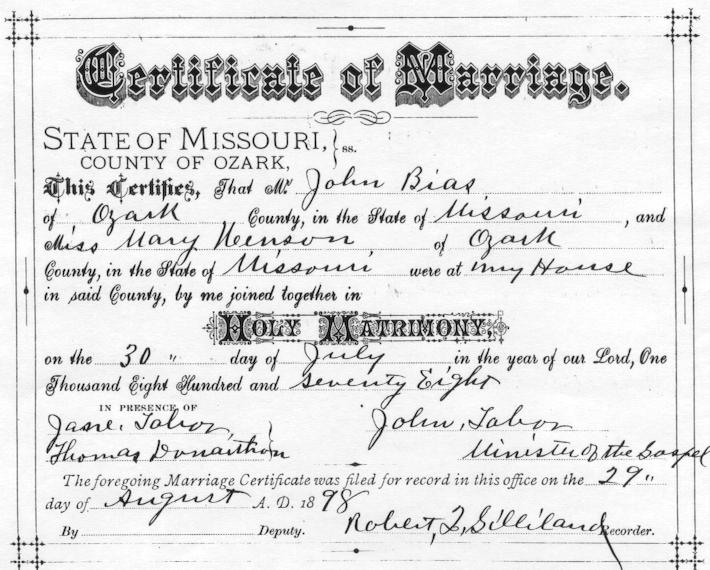 Certificate of Marriage.
STATE OF MISSOURI, } ss.
COUNTY OF OZARK,
This Certifies, That Mr. John Bias
of Ozark County, in the State of Missouri, and
Miss Mary Henson of Ozark
County, in the State of Missouri were at my House
in said County, by me joined together in
HOLY MATRIMONY,
on the 30 " day of July in the year of our Lord, One
Thousand Eight Hundred and Seventy Eight
IN PRESENCE OF
Jane, Tabor, John, Tabor
Thomas Minister of the Gospel
The foregoing Marriage Certificate was filed for record in this office on the 29 "
day of August A. D. 1898
By Deputy. Robert, Gilliland Recorder.